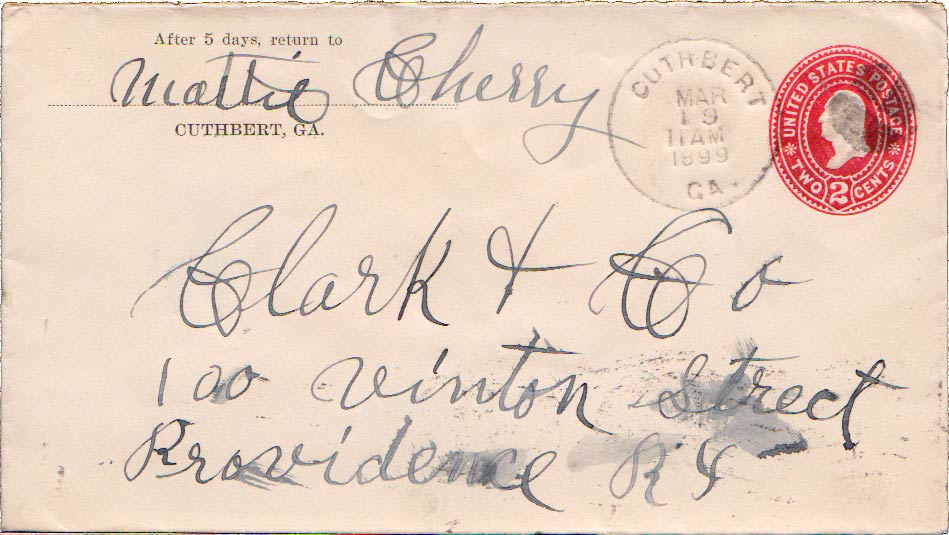 After 5 days, return to
Mattie Cherry
CUTHBERT, GA.
CUTHBERT
MAR
19
11 AM
1899
GA.
UNITED STATES POSTAGE
TWO 2 CENTS
Clark & Co
100 Vinton Street
Providence R I